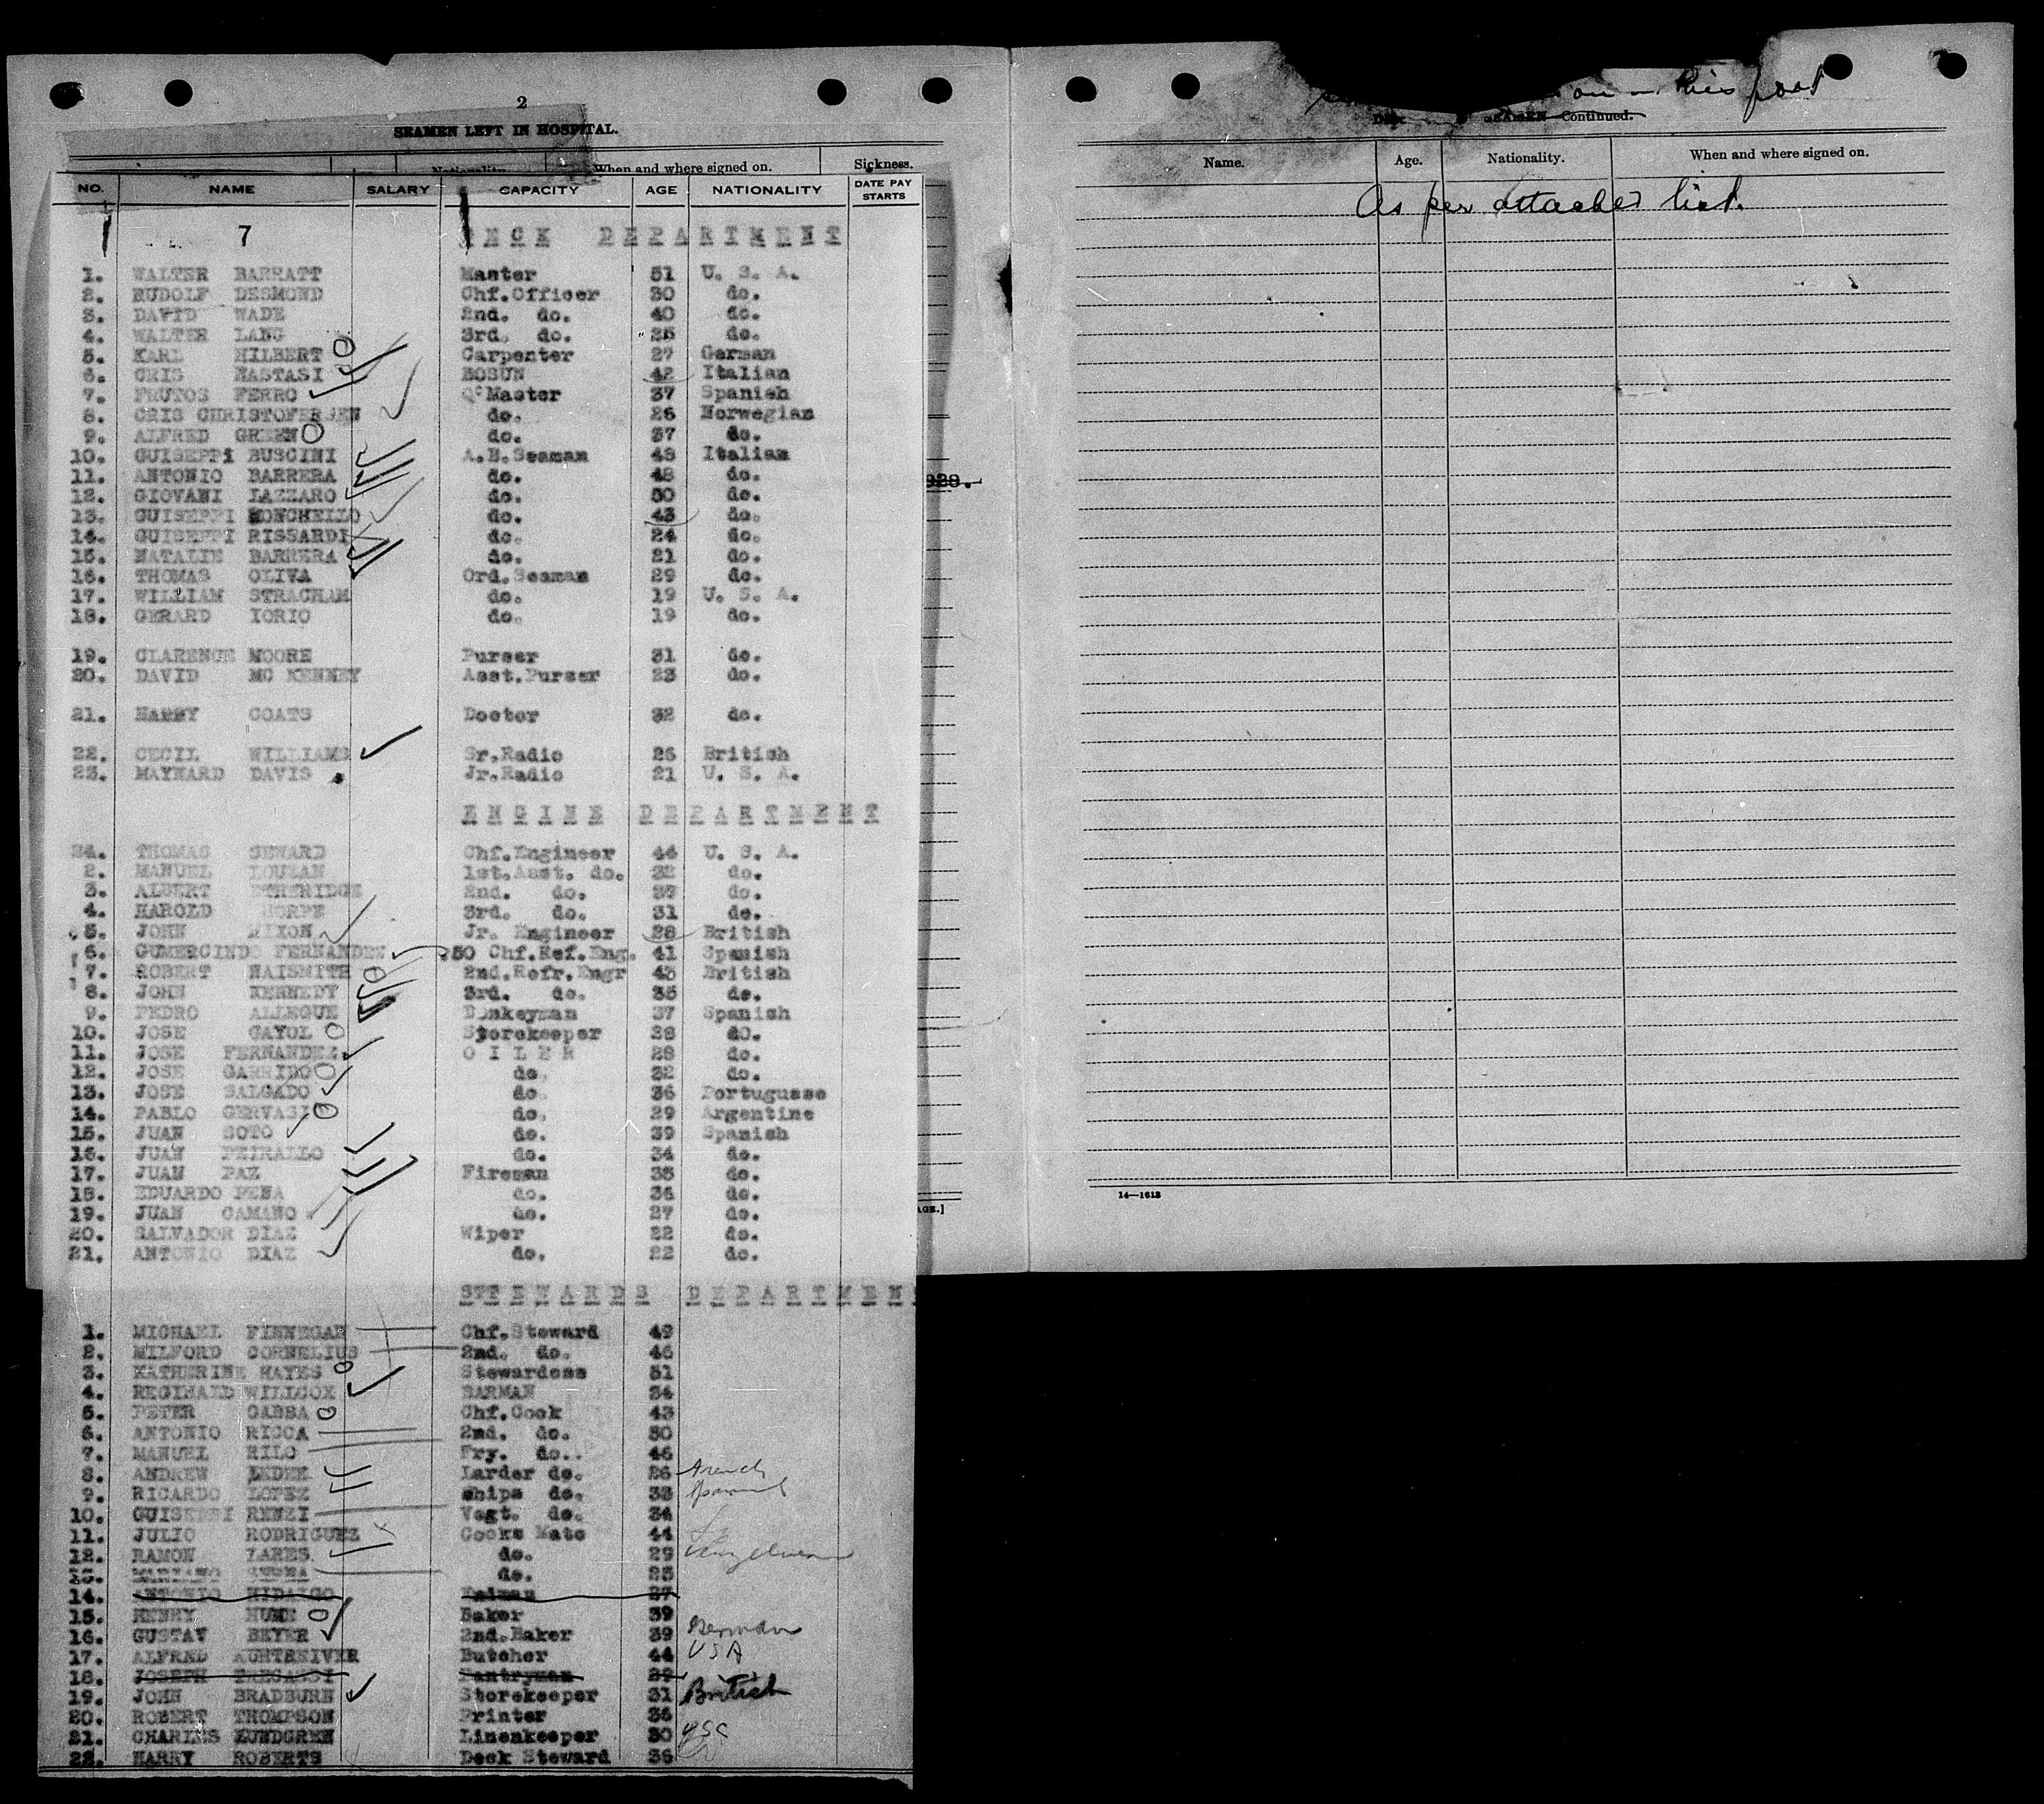 2
SEAMEN LEFT IN HOSPITAL.
Nationality. When and where signed on. Sickness.
NO. NAME SALARY CAPACITY AGE NATIONALITY DATE PAY STARTS
7 DECK DEPARTMENT
1. WALTER BARRATT Master 51 U. S. A.
2. RUDOLF DESMOND Chf.Officer 30 do.
3. DAVID WADE 2nd. do. 40 do.
4. WALTER LANG 3rd. do. 25 do.
5. KARL HILBERT Carpenter 27 German
6. CRIS NASTASI BOSUN 42 Italian
7. FRUTOS FERRO Q. Master 37 Spanish
8. CRIS CHRISTOFERSEN do. 26 Norwegian
9. ALFRED GREEN do. 37 do.
10. GUISEPPI BUSCINI A.B.Seaman 48 Italian
11. ANTONIO BARRERA do. 48 do.
12. GIOVANI LAZZARO do. 50 do.
13. GUISEPPI MONCHELLO do. 43 do.
14. GUISEPPI RISSARDI do. 24 do.
15. NATALIE BARRERA do. 21 do.
16. THOMAS OLIVA Ord.Seaman 29 do.
17. WILLIAM STRACHAM do. 19 U. S. A.
18. GERARD IORIO do. 19 do.
19. CLARENCE MOORE Purser 31 do.
20. DAVID MC KENNEY Asst.Purser 23 do.
21. HARRY COATS Doctor 32 do.
22. CECIL WILLIAMS Sr.Radio 26 British
23. MAYNARD DAVIS Jr.Radio 21 U. S. A.
ENGINE DEPARTMENT
24. THOMAS SEWARD Chf.Engineer 44 U. S. A.
2. MANUEL LOUZAN 1st.Asst. do. 32 do.
3. ALBERT ETHERIDGE 2nd. do. 37 do.
4. HAROLD THORPE 3rd. do. 31 do.
5. JOHN DIXON Jr. Engineer 28 British
6. GUMERCINDO FERNANDEZ .50 Chf.Ref.Eng. 41 Spanish
7. ROBERT NAISMITH 2nd.Refr.Engr 43 British
8. JOHN KENNEDY 3rd. do. 35 do.
9. PEDRO ALLEGUE Donkeyman 37 Spanish
10. JOSE GAYOL Storekeeper 28 do.
11. JOSE FERNANDEZ OILER 28 do.
12. JOSE GARRIDO do. 32 do.
13. JOSE SALGADO do. 36 Portuguese
14. PABLO GERVASIO do. 29 Argentine
15. JUAN SOTO do. 39 Spanish
16. JUAN PEIRALLO do. 34 do.
17. JUAN PAZ Fireman 35 do.
18. EDUARDO PENA do. 36 do.
19. JUAN CAMANO do. 27 do.
20. SALVADOR DIAZ Wiper 22 do.
21. ANTONIO DIAZ do. 22 do.
STEWARDS DEPARTMEN
1. MICHAEL FINNEGAN Chf.Steward 49
2. MILFORD CORNELIUS 2nd. do. 46
3. KATHERINE HAYES Stewardess 51
4. REGINALD WILLCOX BARMAN 34
5. PETER GABBA Chf.Cook 43
6. ANTONIO RICCA 2nd. do. 50
7. MANUEL RILO Fry. do.. 46
8. ANDREW LEDEE Larder do. 26 French
9. RICARDO LOPEZ Ships do. 33 Spanish
10. GUISEPPI RENZI Vegt. do. 34
11. JULIO RODRIGUEZ Cooks Mate 44
12. RAMON LARES do. 29
13. MARIANO do. 23
14. ANTONIO HIDALGO 27
15. HENRY HUME Baker 39
16. GUSTAV BEYER 2nd.Baker 39 German
17. ALFRED Butcher 44 USA
18. JOSEPH Pantryman 29
19. JOHN BRADBURN Storekeeper 31 British
20. ROBERT THOMPSON Printer 36
21. CHARLES LUNDGREN Linenkeeper 30 USA
22. HARRY ROBERTS Deck Steward 36
928.
AGE.]
on this port
SEAMEN—Continued.
Name. Age. Nationality. When and where signed on.
As per attached list.
14—1613